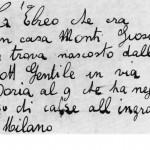 l'Ebreo che era
in casa Monti
trova nascosto dall
ott Gentile in via
Doria al 9 che ha neg
o di caffe all ingro
Milano